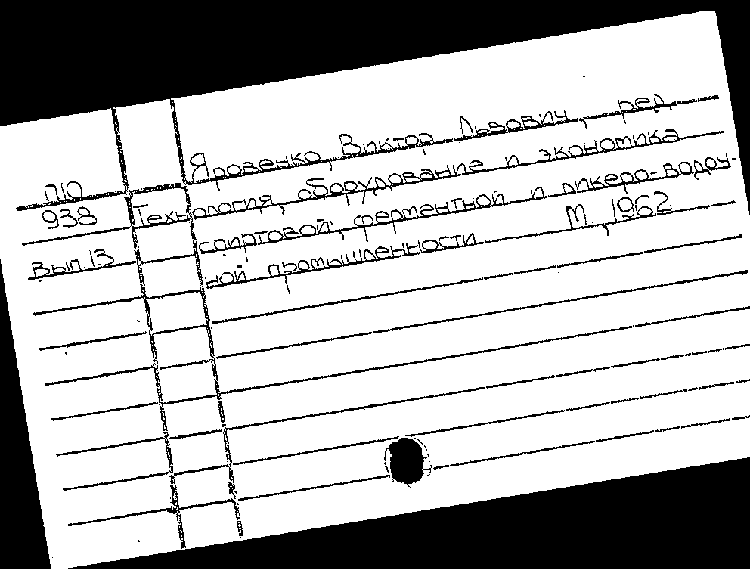 Яровенко, Виктор Львович, ред.
П10
938 Технология, оборудование и экономика
спиртовой, ферментной и ликеро-водоч-
Вып 13 ной промышленности. М., 1962